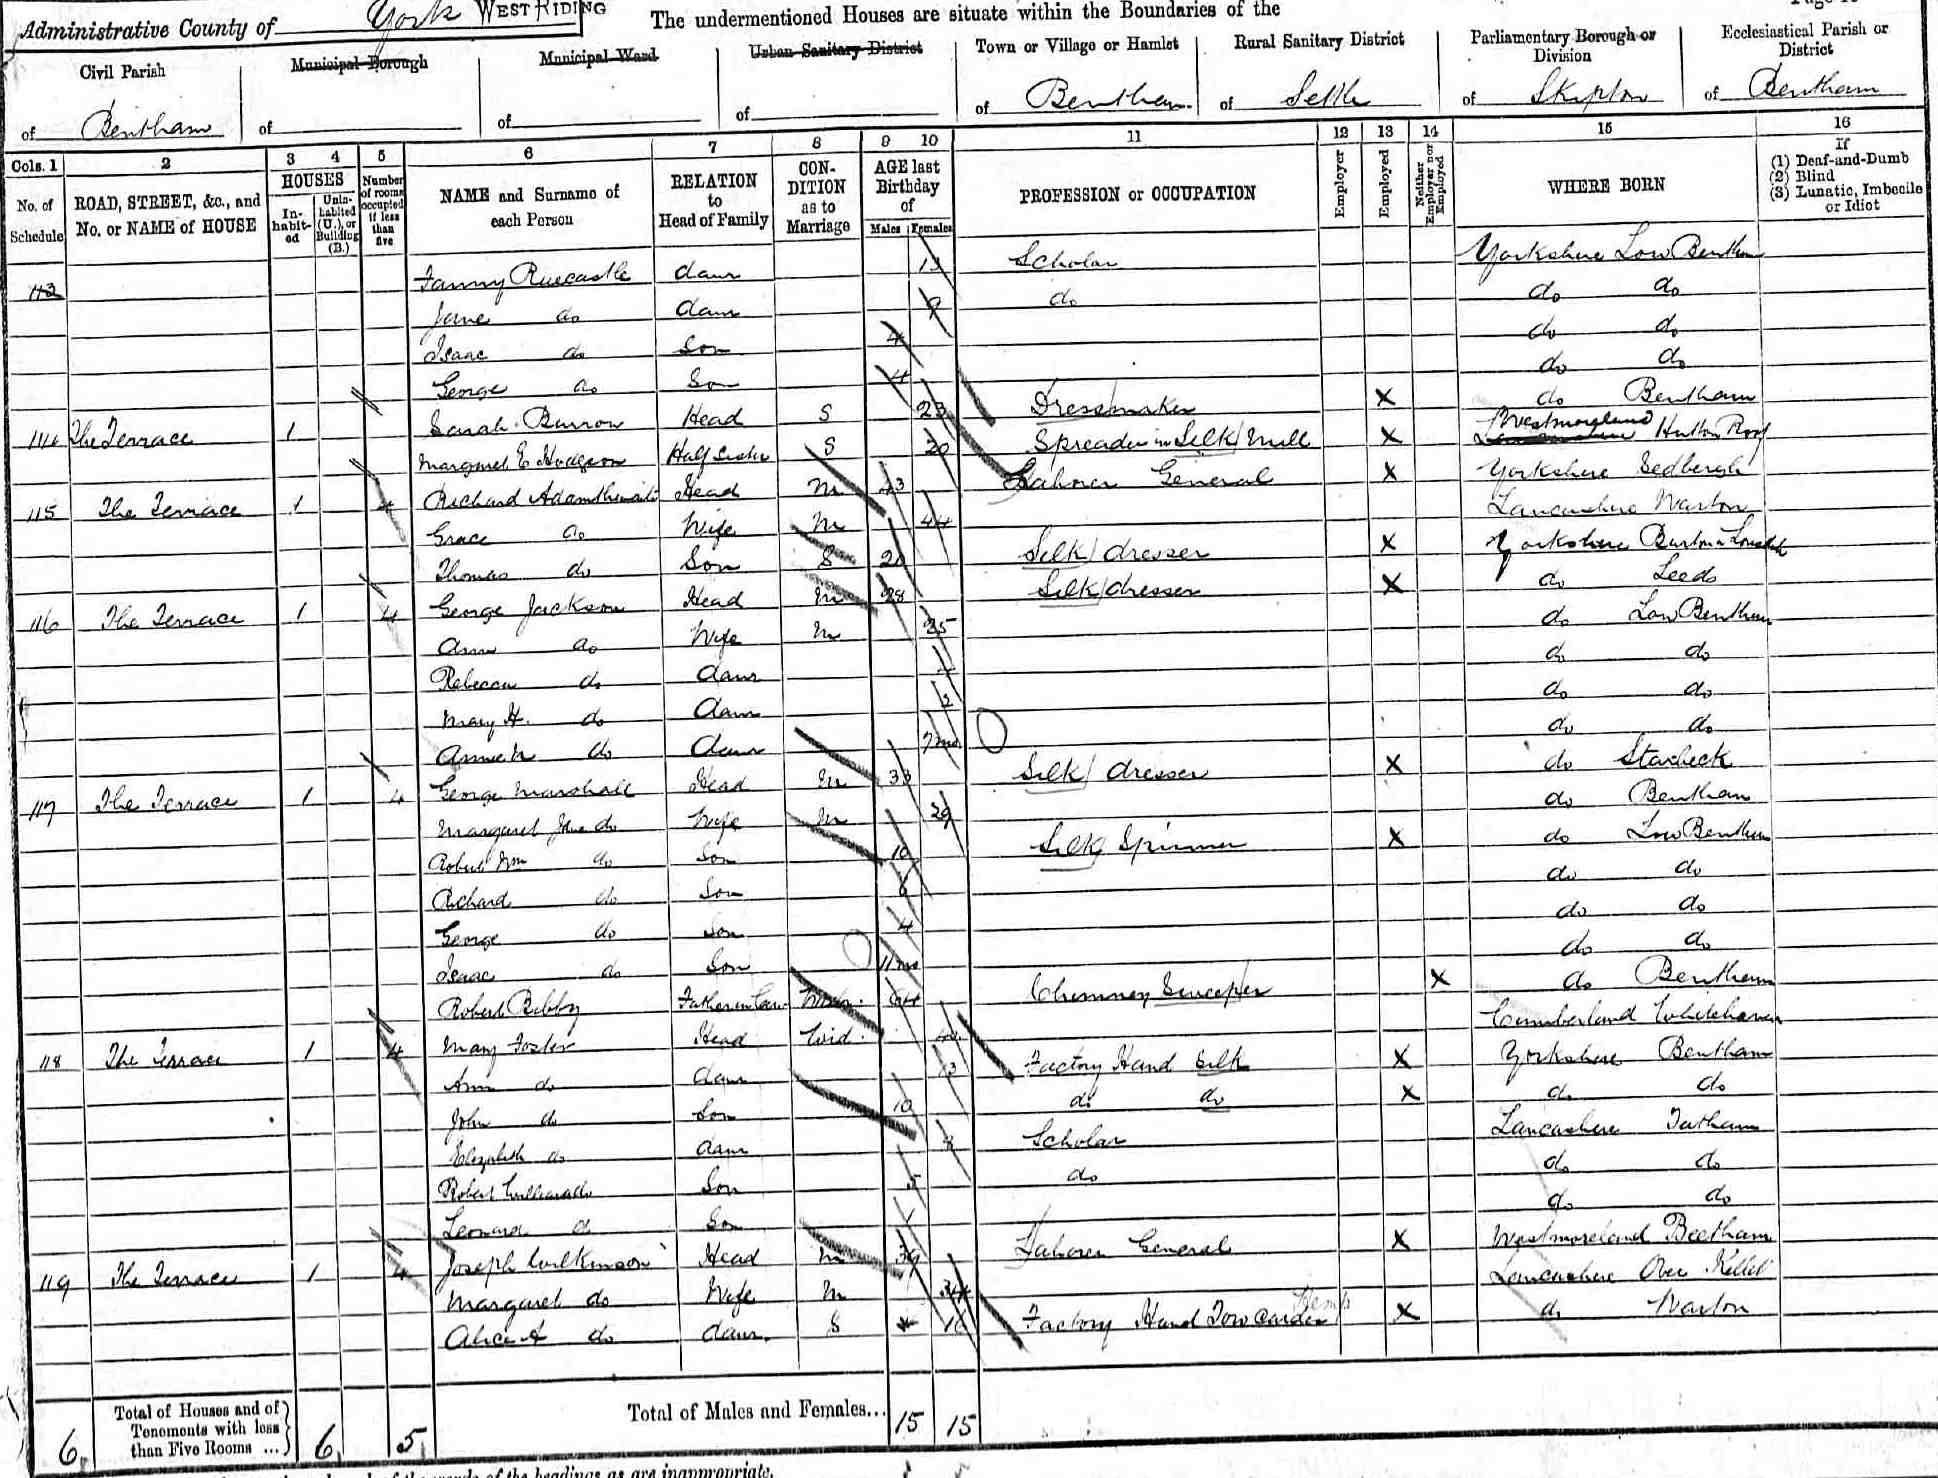 Administrative County of York WEST RIDING The undermentioned Houses are situate within the Boundaries of the
Civil Parish Municipal Borough Municipal Ward Urban Sanitary District Town or Village or Hamlet Rural Sanitary District Parliamentary Borough or Division Ecclesiastical Parish or District
of Bentham of of of of Bentham of Settle of Skipton of Bentham
Cols. 1 2 3 4 5 6 7 8 9 10 11 12 13 14 15 16
No. of Schedule ROAD, STREET, &c., and No. or NAME of HOUSE HOUSES Inhabited Uninhabited (U.), or Building (B.) Number of rooms occupied if less than five NAME and Surname of each Person RELATION to Head of Family CONDITION as to Marriage AGE last Birthday of Males Females PROFESSION or OCCUPATION Employer Employed Neither Employer nor Employed WHERE BORN If (1) Deaf-and-Dumb (2) Blind (3) Lunatic, Imbecile or Idiot
113 Fanny Ruecastle daur 13 Scholar Yorkshire Low Bentham
Jane do daur 9 do do do
Isaac do Son 4 do do
George do Son 4 do do
114 The Terrace 1 Sarah Burrow Head S 23 Dressmaker X do Bentham
Margaret E Hodgson Half Sister S 20 Spreader in Silk Mill X Westmoreland Hutton Roof
115 The Terrace 1 4 Richard Adamthwaite Head M 43 Labourer General X Yorkshire Sedbergh
Grace do Wife M 44 Lancashire Warton
Thomas do Son S 20 Silk dresser X Yorkshire Burton in Lonsdale
116 The Terrace 1 4 George Jackson Head M 28 Silk dresser X do Leeds
Ann do Wife M 25 do Low Bentham
Rebecca do daur 4 do do
Mary H. do daur 2 do do
Annie M do daur 7mo. do do
117 The Terrace 1 4 George Marshall Head M 33 Silk dresser X do Starbeck
Margaret Jane do Wife M 29 do Bentham
Robert Wm do Son 10 Silk Spinner X do Low Bentham
Richard do Son 6 do do
George do Son 4 do do
Isaac do Son 11mo do do
Robert Bibby Father in Law Widr. 64 Chimney Sweeper X do Bentham
118 The Terrace 1 4 Mary Foster Head Wid. Cumberland Whitehaven
Ann do daur 13 Factory Hand Silk X Yorkshire Bentham
John do Son 10 do do X do do
Elizabeth do daur 8 Scholar Lancashire Tatham
Robert William do Son 5 do do do
Leonard do Son 1 do do
119 The Terrace 1 4 Joseph Wilkinson Head M 39 Labourer General X Westmoreland Beetham
Margaret do Wife M 34 Lancashire Over Kellet
Alice A do daur. S 16 Factory Hand Tow Carder Hemp X do Warton
6 Total of Houses and of Tenements with less than Five Rooms ... 6 5 Total of Males and Females... 15 15
of the headings as are inappropriate.